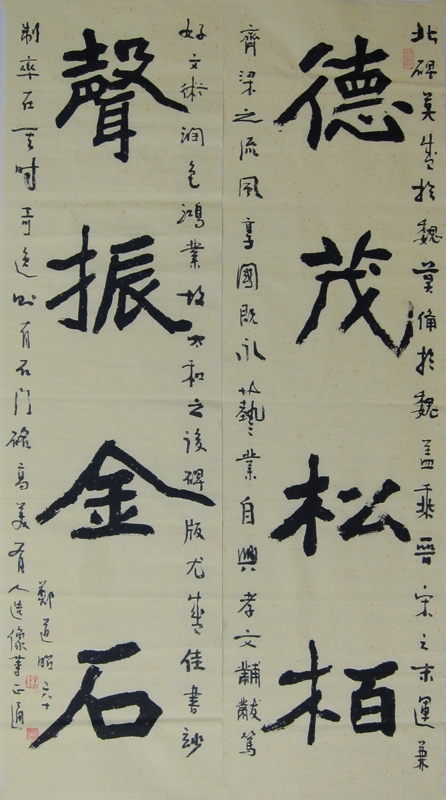 北碑莫盛於魏莫備於魏蓋乘晉宋之末運兼
德茂松柏
齊梁之流風享國既永藝業自興孝文黼黻篤
好文術潤色鴻業故太和之後碑版尤盛佳書妙
聲振金石
制率在亓時奇逸則有石门銘高美有人造像等正
鄭道昭六十